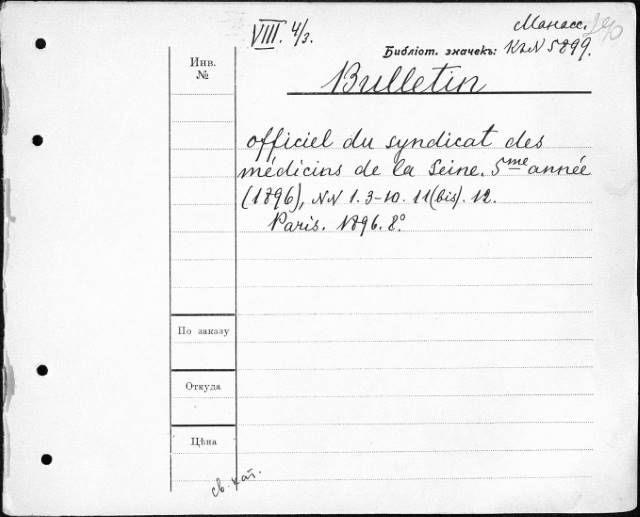 VIII. 4/3.
Манасс.
Библіот. значекъ: К2N 5899.
Инв.
№
Bulletin
officiel du syndicat des
médicins de la Seine. 5me année
(1896), NN 1. 3-10. 11(bis). 12.
Paris. 1896. 8°.
По заказу
Откуда
Цѣна
св. кат.